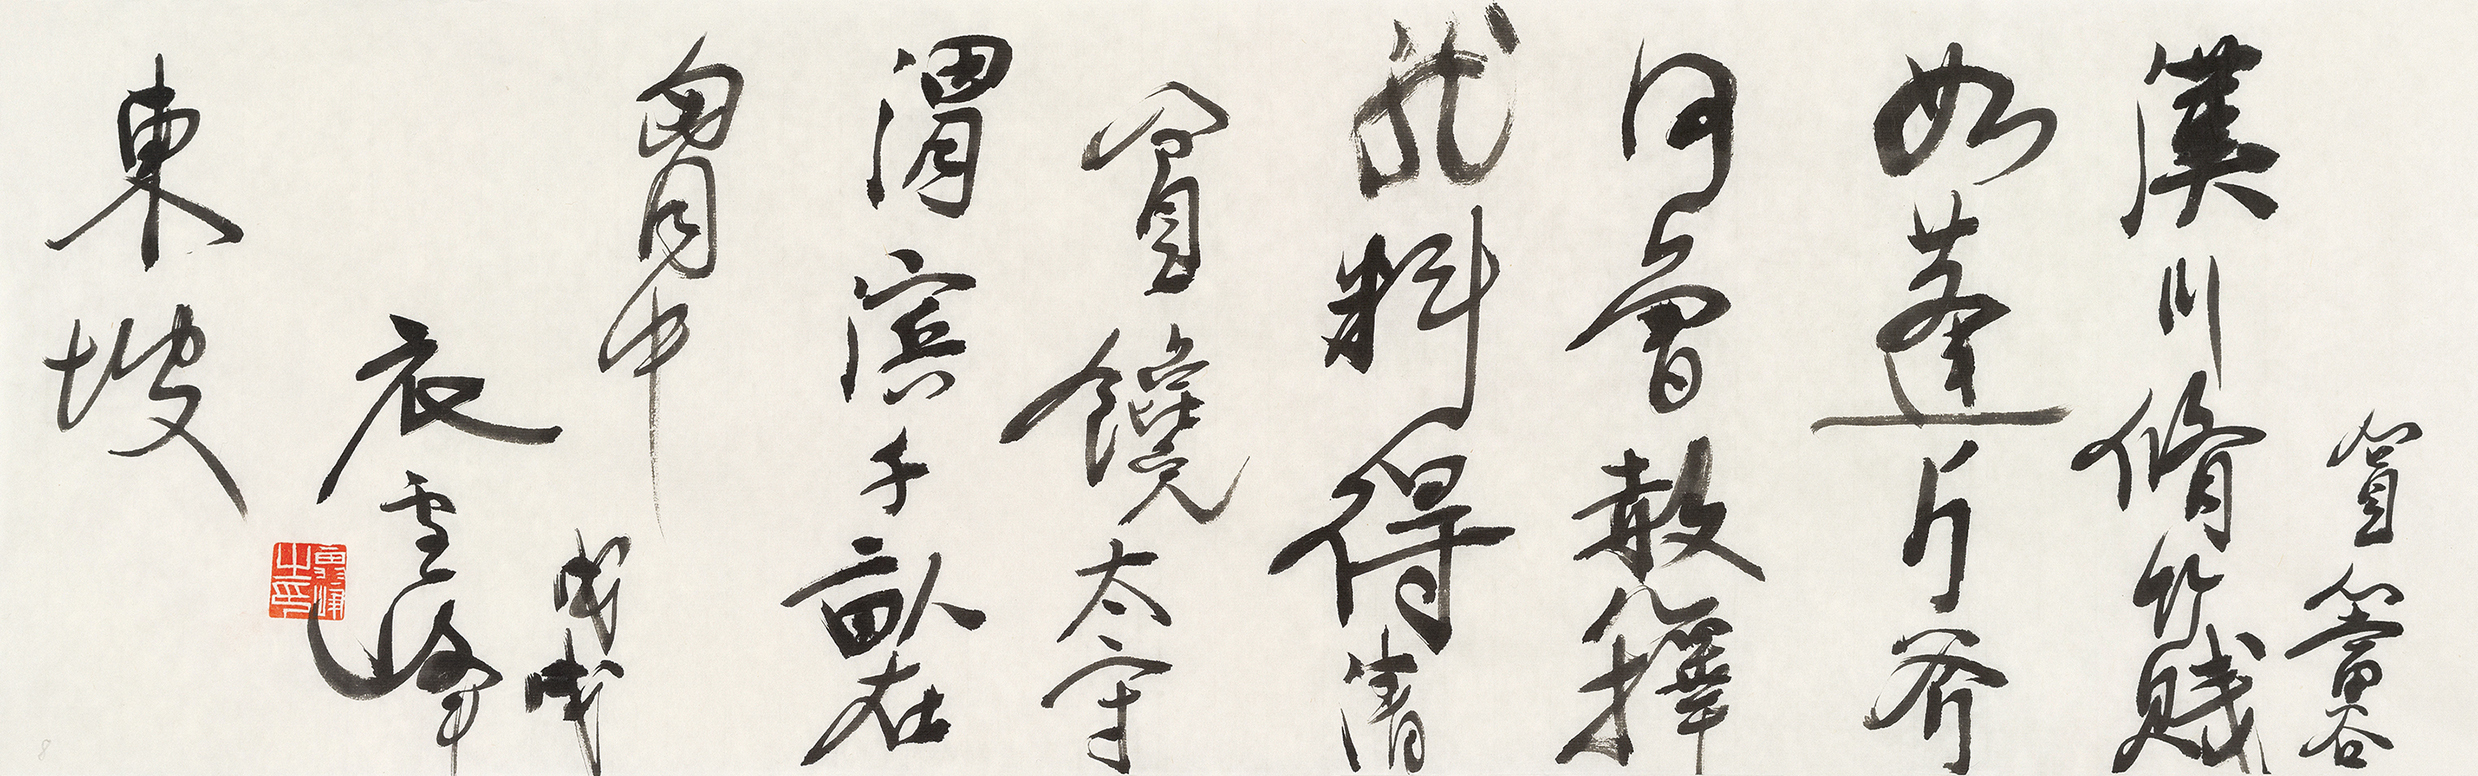 篔簹谷
漢川脩竹賤
如蓬斤斧
何曾赦籜
龙料得清
貧饞太守
渭滨千畝在
胷中
戊戌
衣雪峰
東坡